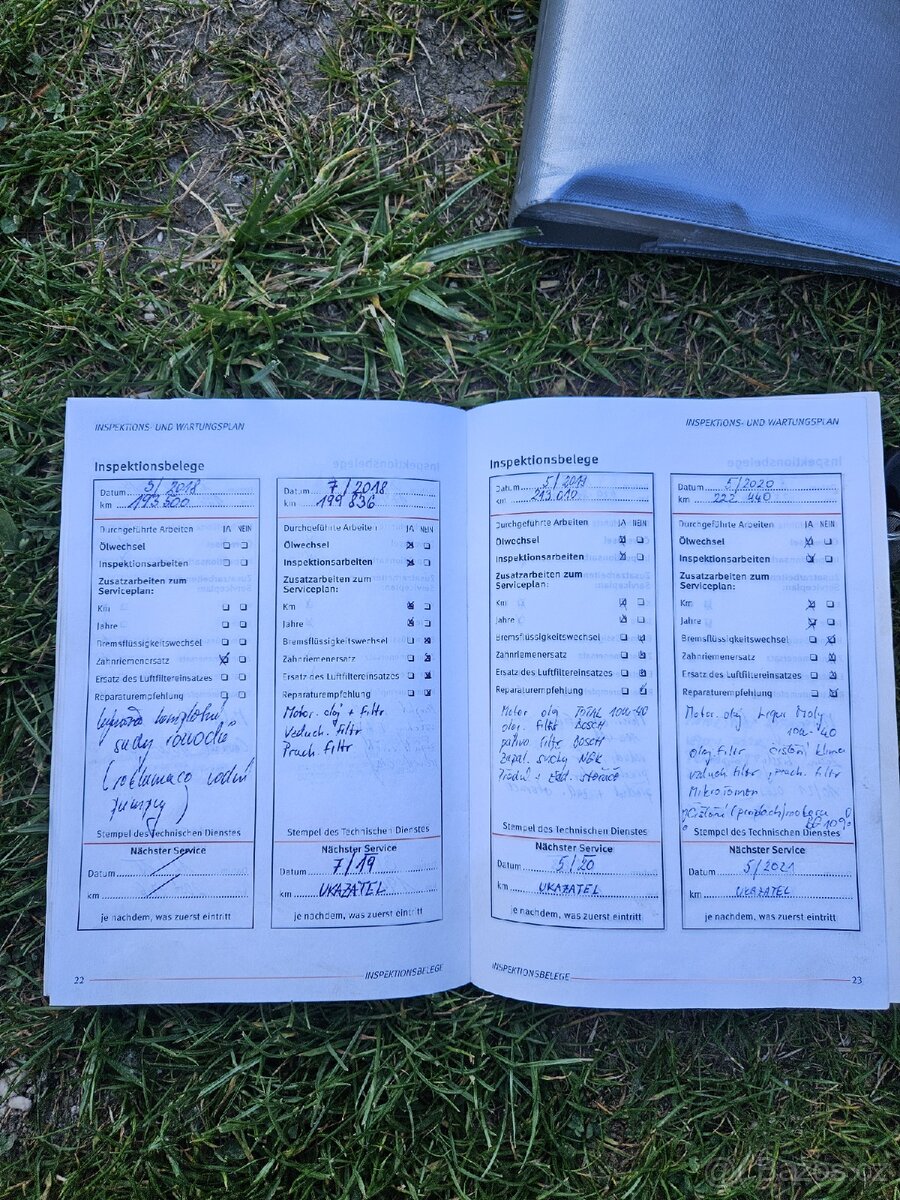 INSPEKTIONS- UND WARTUNGSPLAN
Inspektionsbelege
Datum 5/2018
km 193 500
Durchgeführte Arbeiten JA NEIN
Ölwechsel
Inspektionsarbeiten
Zusatzarbeiten zum
Serviceplan:
Km
Jahre
Bremsflüssigkeitswechsel
Zahnriemenersatz
Ersatz des Luftfiltereinsatzes
Reparaturempfehlung
sady
vodní
Stempel des Technischen Dienstes
Nächster Service
Datum
km
je nachdem, was zuerst eintritt
Datum 7/2018
km 199 836
Durchgeführte Arbeiten JA NEIN
Ölwechsel
Inspektionsarbeiten
Zusatzarbeiten zum
Serviceplan:
Km
Jahre
Bremsflüssigkeitswechsel
Zahnriemenersatz
Ersatz des Luftfiltereinsatzes
Reparaturempfehlung
Motor. olej + filtr
Vzduch. filtr
Prach. filtr
Stempel des Technischen Dienstes
Nächster Service
Datum 7/19
km UKAZATEL
je nachdem, was zuerst eintritt
22
INSPEKTIONSBELEGE
INSPEKTIONS- UND WARTUNGSPLAN
Inspektionsbelege
Datum 5/2019
km 213.010
Durchgeführte Arbeiten JA NEIN
Ölwechsel
Inspektionsarbeiten
Zusatzarbeiten zum
Serviceplan:
Km
Jahre
Bremsflüssigkeitswechsel
Zahnriemenersatz
Ersatz des Luftfiltereinsatzes
Reparaturempfehlung
Motor olej TOTAL 10W-40
olej. filtr BOSCH
palivo filtr BOSCH
Zapal. svíčky NGK
Přední + zad. stěrače
Stempel des Technischen Dienstes
Nächster Service
Datum 5/20
km UKAZATEL
je nachdem, was zuerst eintritt
Datum 5/2020
km 222 440
Durchgeführte Arbeiten JA NEIN
Ölwechsel
Inspektionsarbeiten
Zusatzarbeiten zum
Serviceplan:
Km
Jahre
Bremsflüssigkeitswechsel
Zahnriemenersatz
Ersatz des Luftfiltereinsatzes
Reparaturempfehlung
Motor. olej Liqui Moly
10W-40
olej filtr čištění klima
vzduch filtr, prach. filtr
Stempel des Technischen Dienstes
Nächster Service
Datum 5/2021
km UKAZATEL
je nachdem, was zuerst eintritt
INSPEKTIONSBELEGE
23
Bazos.cz